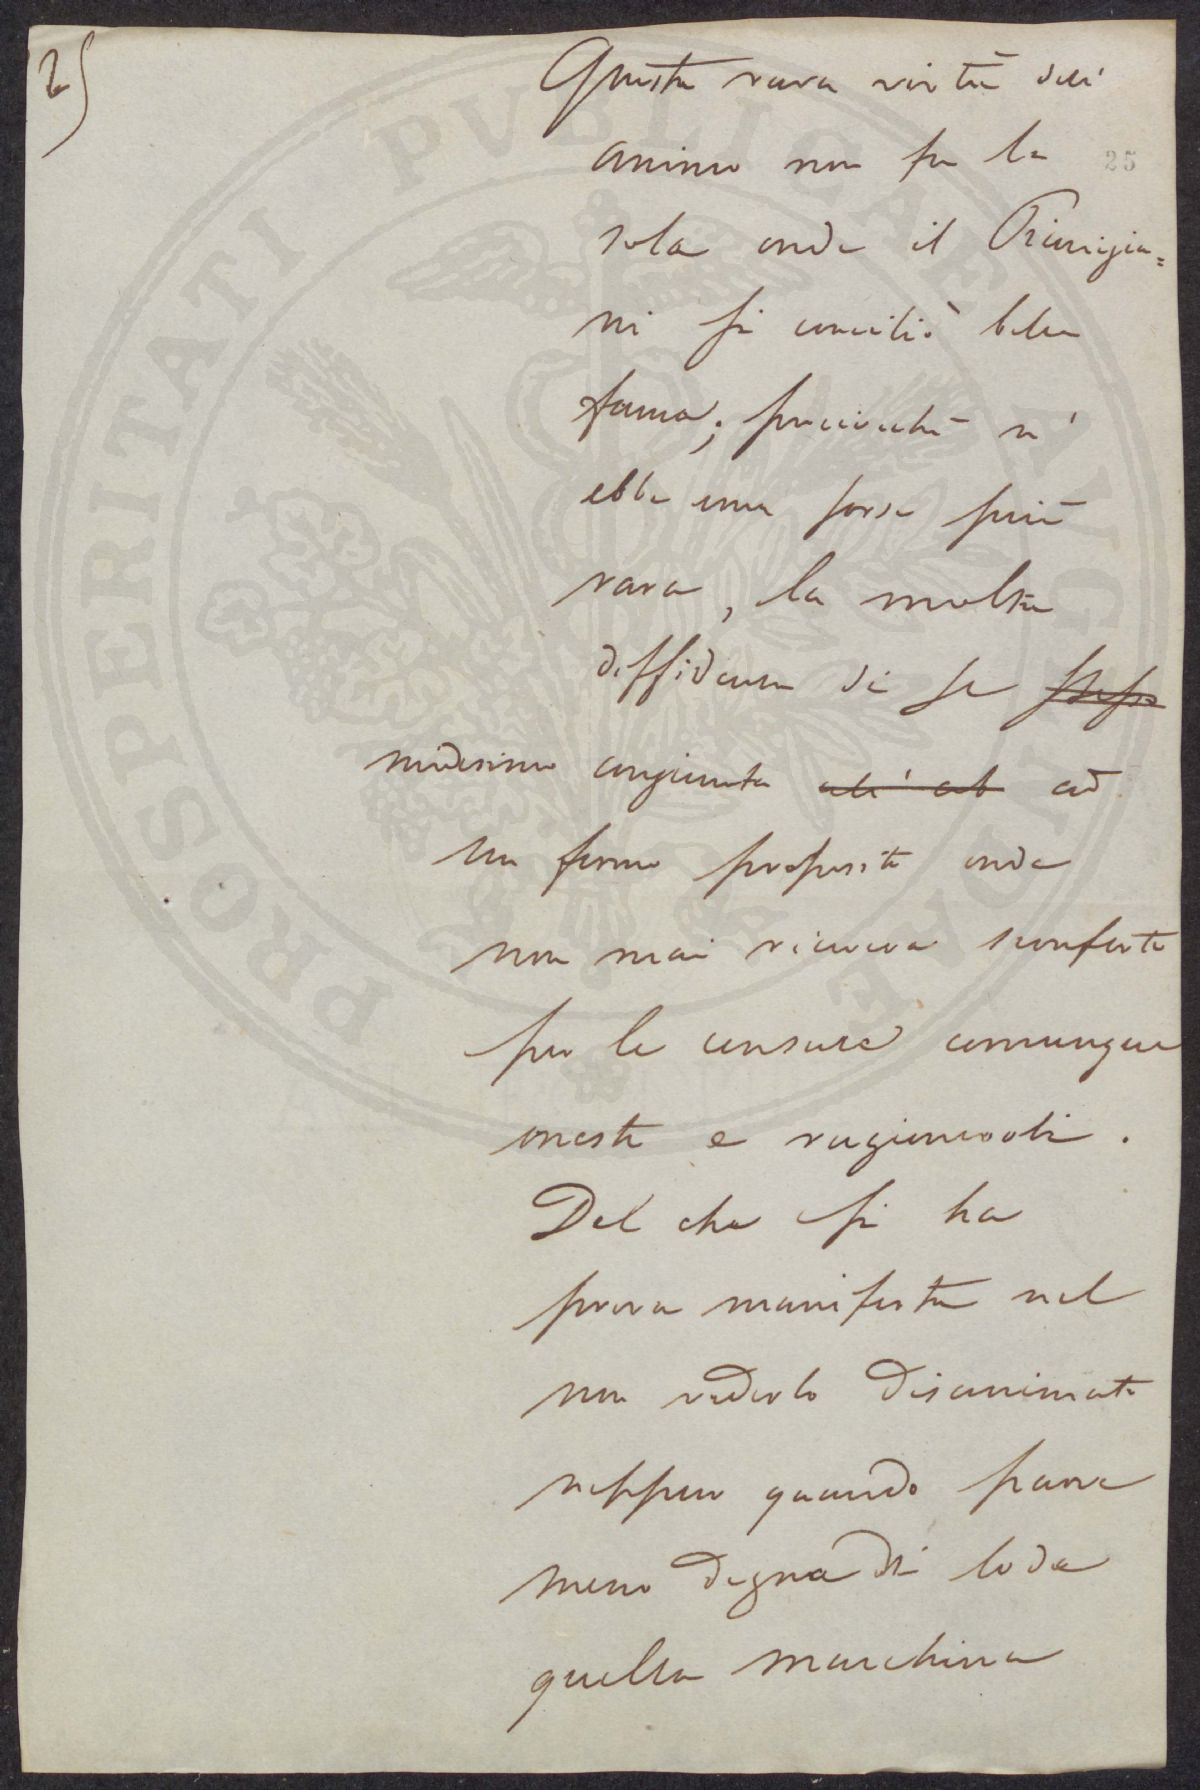 2)
Questa rara virtù dell'
animo non fu la
25
sola onde il Primigia=
ni si conciliò bella
fama; perciocchè n'
ebbe una forse più
rara, la molta
diffidenza di se stesso
medesimo congiunta all' ad
un fermo proposito onde
non mai riceveva sconforto
per le censure comunque
oneste e ragionevoli.
Del che si ha
prova manifesta nel
non vederlo disanimato
neppur quando parve
meno degna di lode
quella macchina
PROSPERITATI PVBLICAE AVGENDAE